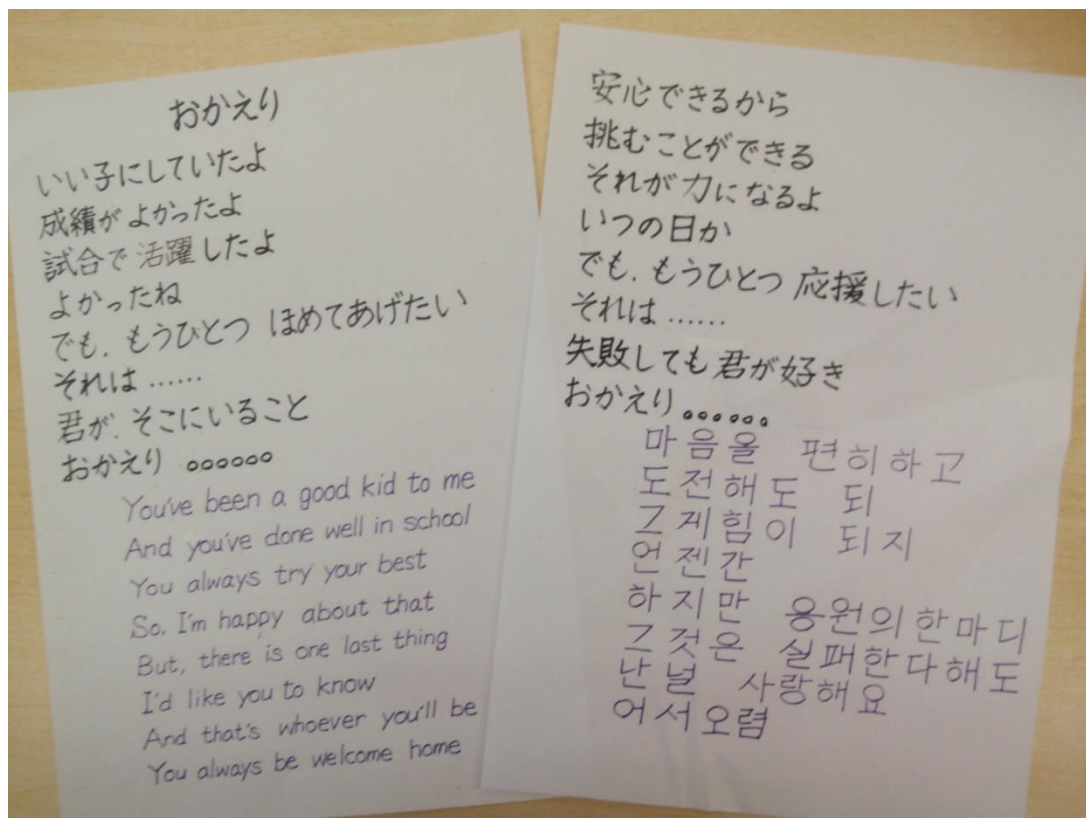 おかえり
いい子にしていたよ
成績がよかったよ
試合で活躍したよ
よかったね
でも、もうひとつ ほめてあげたい
それは……
君が、そこにいること
おかえり 。。。。。。
You've been a good kid to me
And you've done well in school
You always try your best
So, I'm happy about that
But, there is one last thing
I'd like you to know
And that's whoever you'll be
You always be welcome home
安心できるから
挑むことができる
それが力になるよ
いつの日か
でも、もうひとつ 応援したい
それは……
失敗しても君が好き
おかえり 。。。。。。
마음을 편히하고
도전해도 되
그게힘이 되지
언젠간
하지만 응원의한마디
그것은 실패한다해도
난널 사랑해요
어서오렴